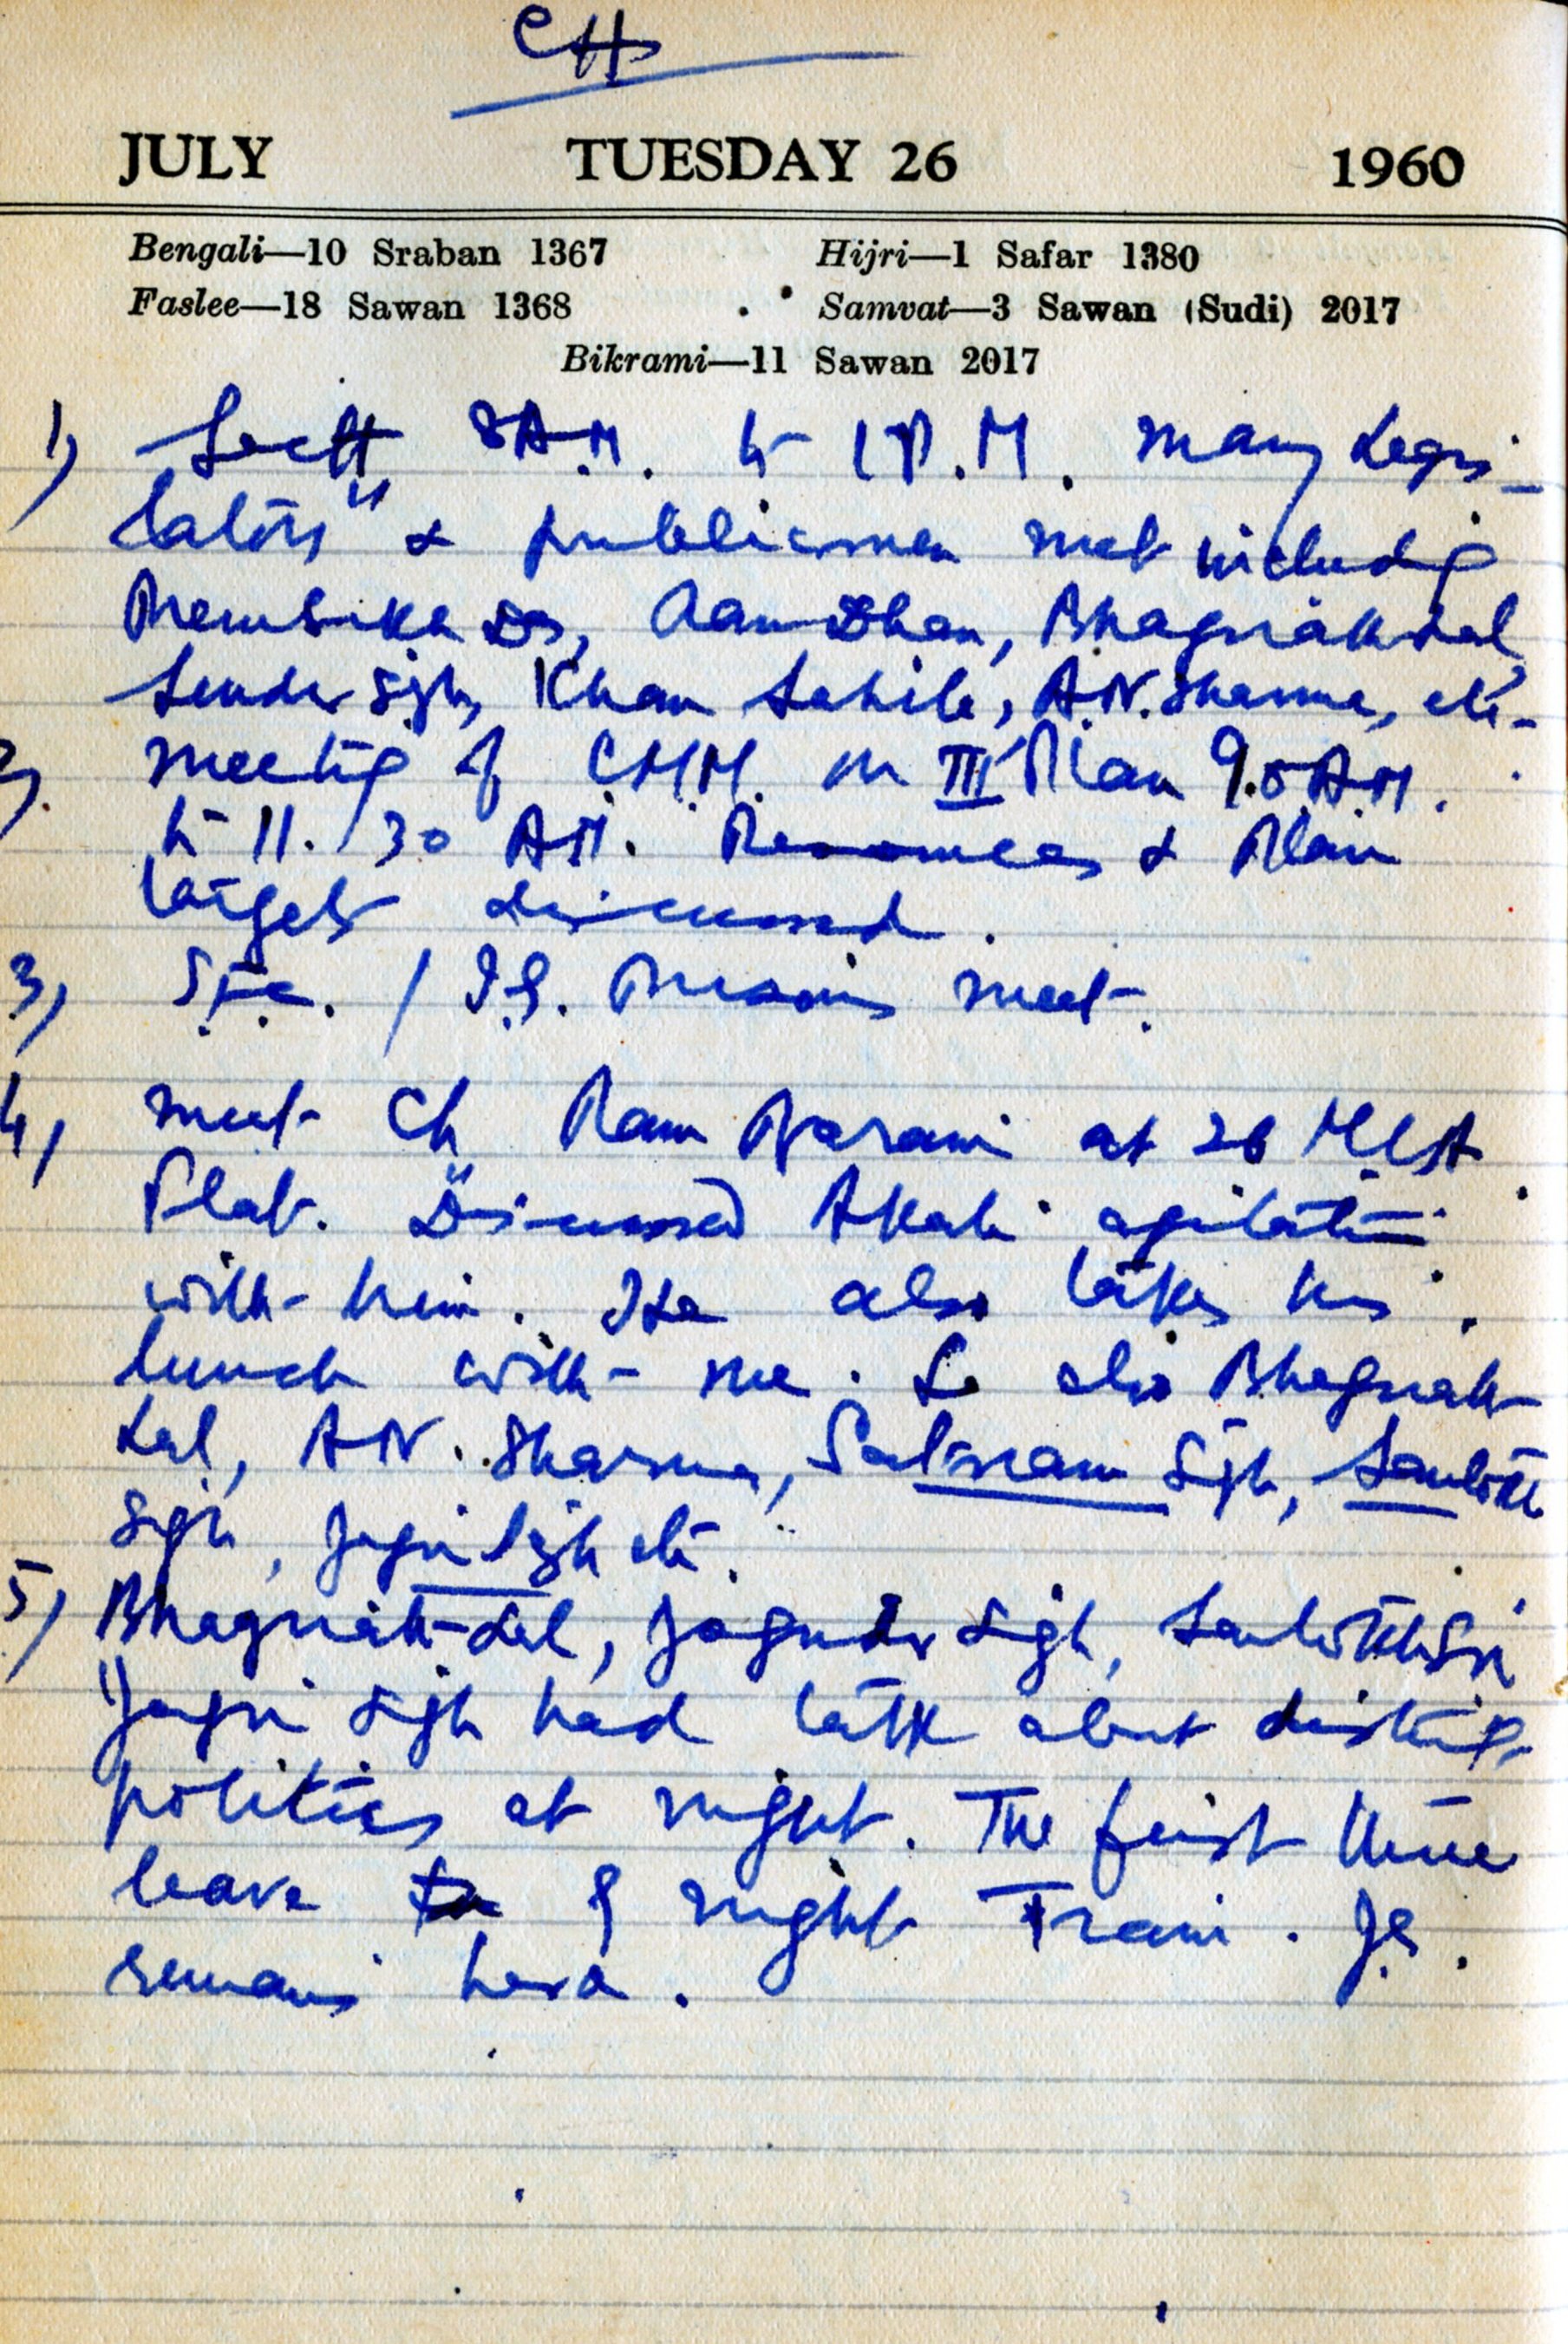 CH
JULY TUESDAY 26 1960
Bengali—10 Sraban 1367 Hijri—1 Safar 1380
Faslee—18 Sawan 1368 Samvat—3 Sawan (Sudi) 2017
Bikrami—11 Sawan 2017
1) Sectt 8 A.M. to 1 P.M. many Legis-
lators & publicmen met including
Ram Dhan, Bhagirath Lal,
Sunder Sigh, Khan Sahib, A.N. Sharma, etc.
2) meeting of C.M.M. on III Plan 9.5 A.M.
to 11.30 AM. Resources & Plan
targets discussed.
3) I.G. Prisons meet.
4) meet Ch Ram Narain at 26 MLA
Flat. Discussed Akali agitation
with him. He also takes his
lunch with me. So also Bhagirath
Lal, A.N. Sharma, Satnam Sigh, Santokh
Sigh, Jagir Sigh etc.
5) Bhagirath Lal, Joginder Sigh, Santokh Sigh
Jagir Sigh had talk about district
politics at night. The first three
leave by night Train. JS.
remains here.